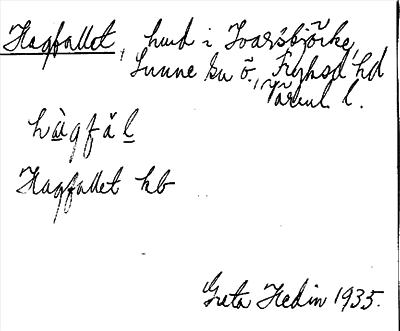 Hagfallet, hmd i Ivarsbjörke,
Sunne sn ö., Fryksd. hd
Värml. l.
hàgfăl
Hagfallet kb
Greta Hedin 1935.